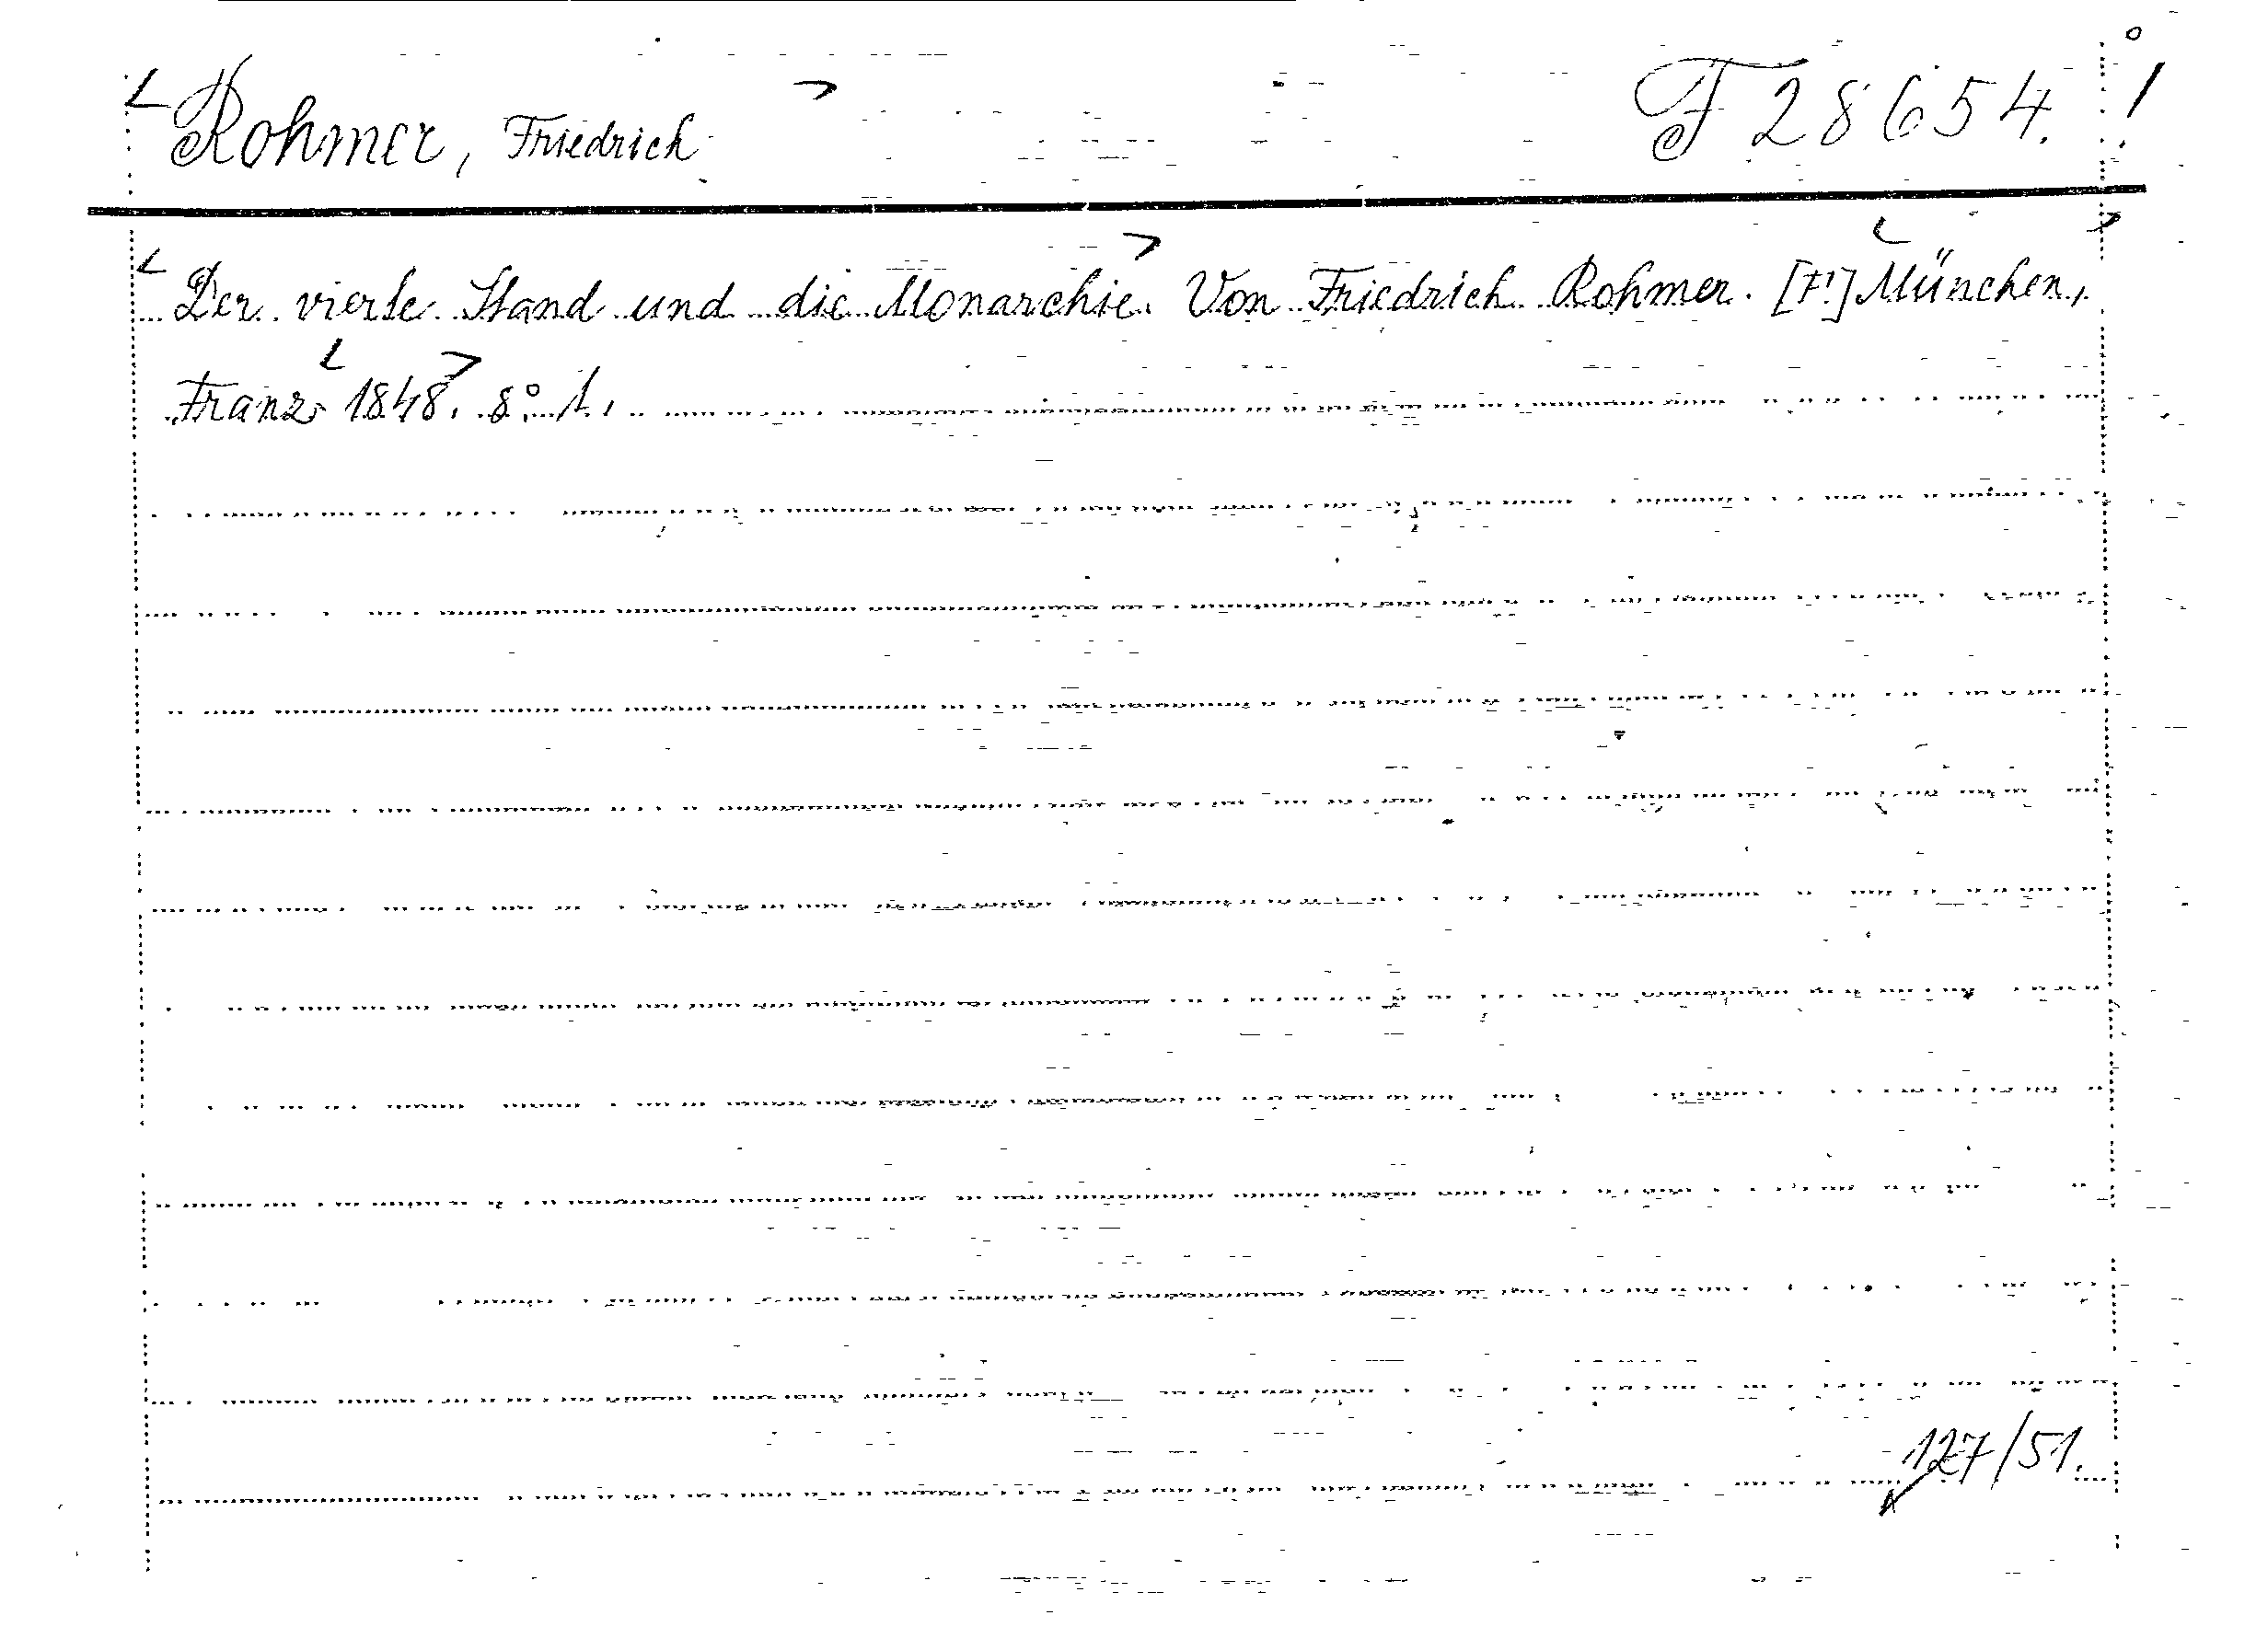 Rohmer, Friedrich F 28654. !
Der vierte Stand und die Monarchie. Von Friedrich Rohmer. [F!] München,
Franz 1848. 8° 1.
127/51.